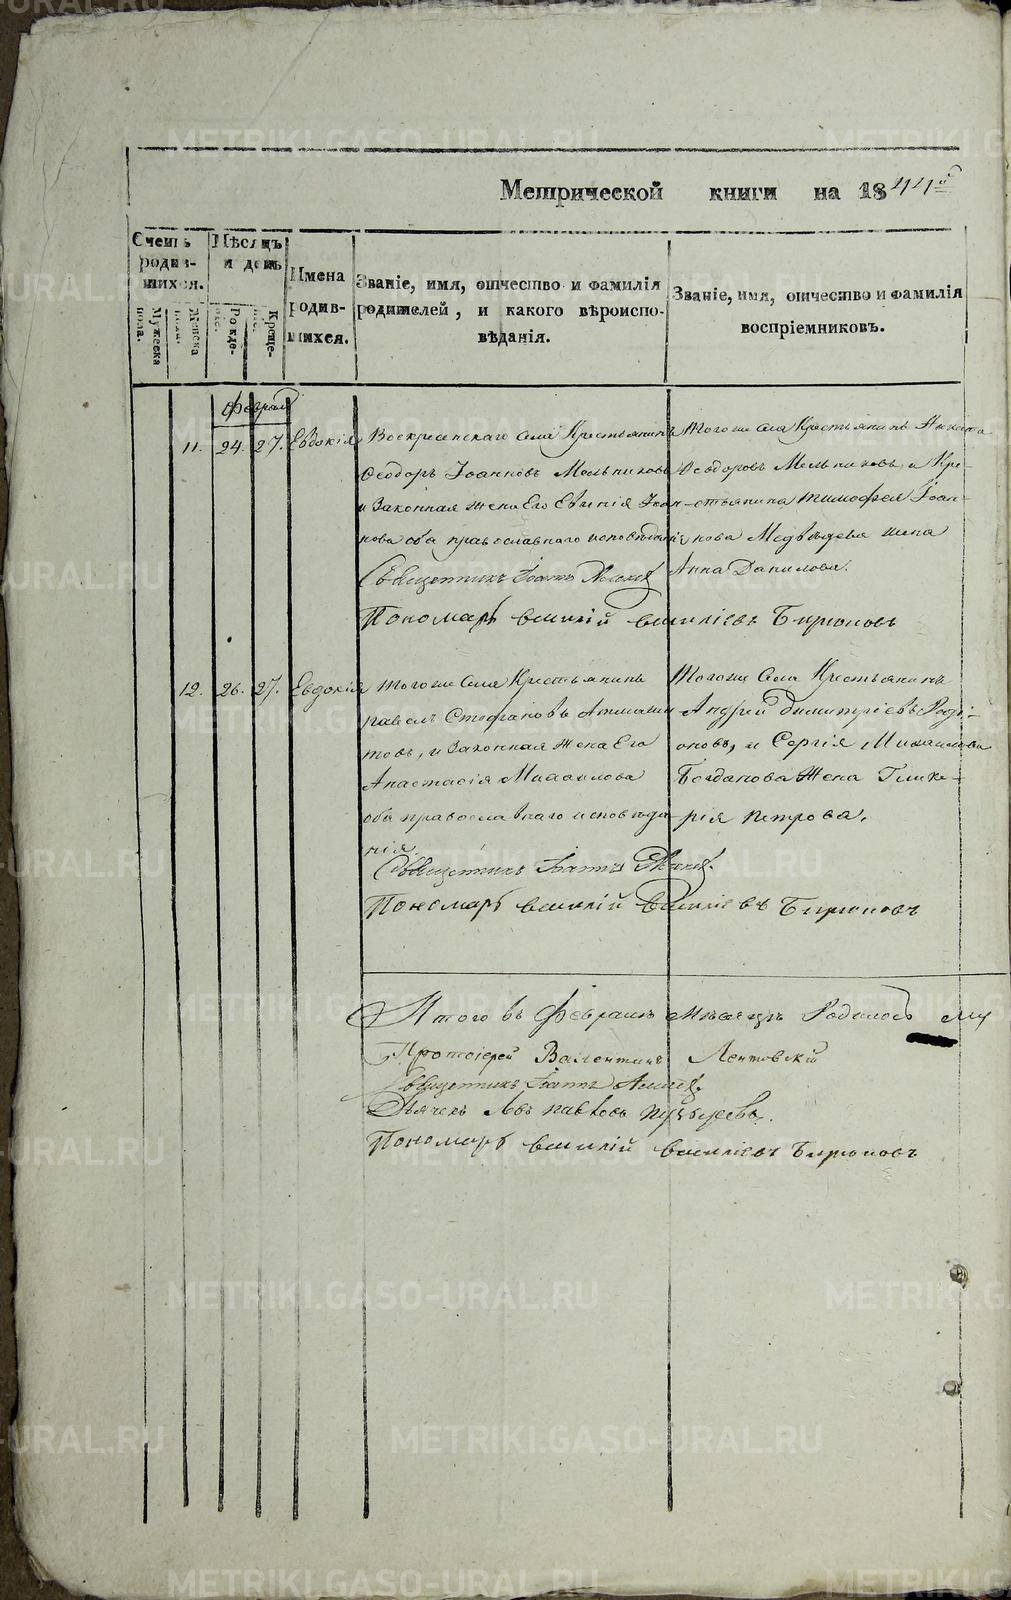 METRIKI.GASO-URAL.RU
Метрической книги на 1844й
Счетъ родив-
шихся.
Мужеска пола.
Женска пола.
Мѣсяцъ и день
Рожде-
нія.
Креще-
нія.
Имена
родив-
шихся.
Званіе, имя, отчество и фамилія
родителей, и какого вѣроиспо-
вѣданія.
Званіе, имя, отчество и фамилія
воспріемниковъ.
Февраль
11. 24. 27. Евдокія
Воскресенскаго села Крестьянинъ
Ѳеодоръ Іоанновъ Мельниковъ
и Законная жена Его Евгенія Іоан-
нова оба православнаго исповѣданія
Священникъ Іоаннъ
Тогоже села Крестьянинъ Никита
Ѳеодоровъ Мельниковъ, и Кре-
стьянина Тимофея Іоан-
нова Медвѣдева жена
Анна Данилова.
Пономарь Василій Василіевъ Бирюковъ
12. 26. 27. Евдокія
Тогоже Села Крестьянинъ
Павелъ Стефановъ
товъ, и Законная жена Его
Анастасія Михаилова
оба православнаго исповѣда-
нія.
Священникъ Іоаннъ
Тогоже Села Крестьянинъ
Андрей Димитріевъ Роді-
оновъ, и Сергія Михаилова
Богданова жена Глике-
рія Петрова.
Пономарь Василій Василіевъ Бирюковъ
Итого въ Февралѣ мѣсяцѣ Родилось
Протоіерей Валентинъ Лентовскій
Священникъ Іоаннъ
Дьячекъ Левъ Павловъ
Пономарь Василій Василіевъ Бирюковъ